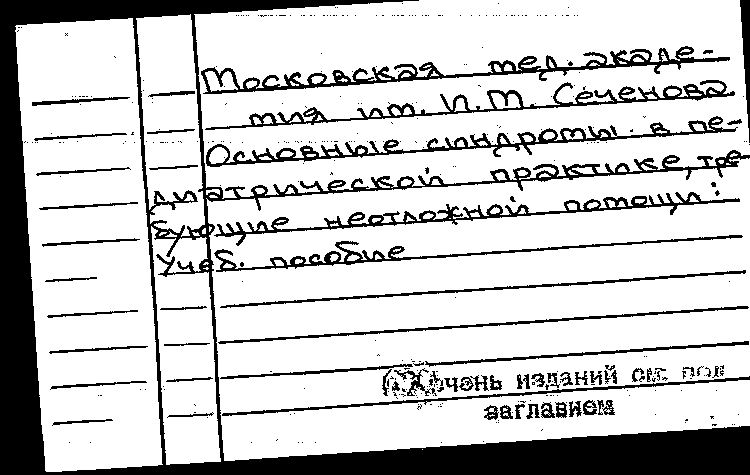 Московская мед. акаде-
мия им. И.М. Сеченова.
Основные синдромы в пе-
диатрической практике, тре
бующие неотложной помощи:
Учеб. пособие
изданий см. под
заглавием